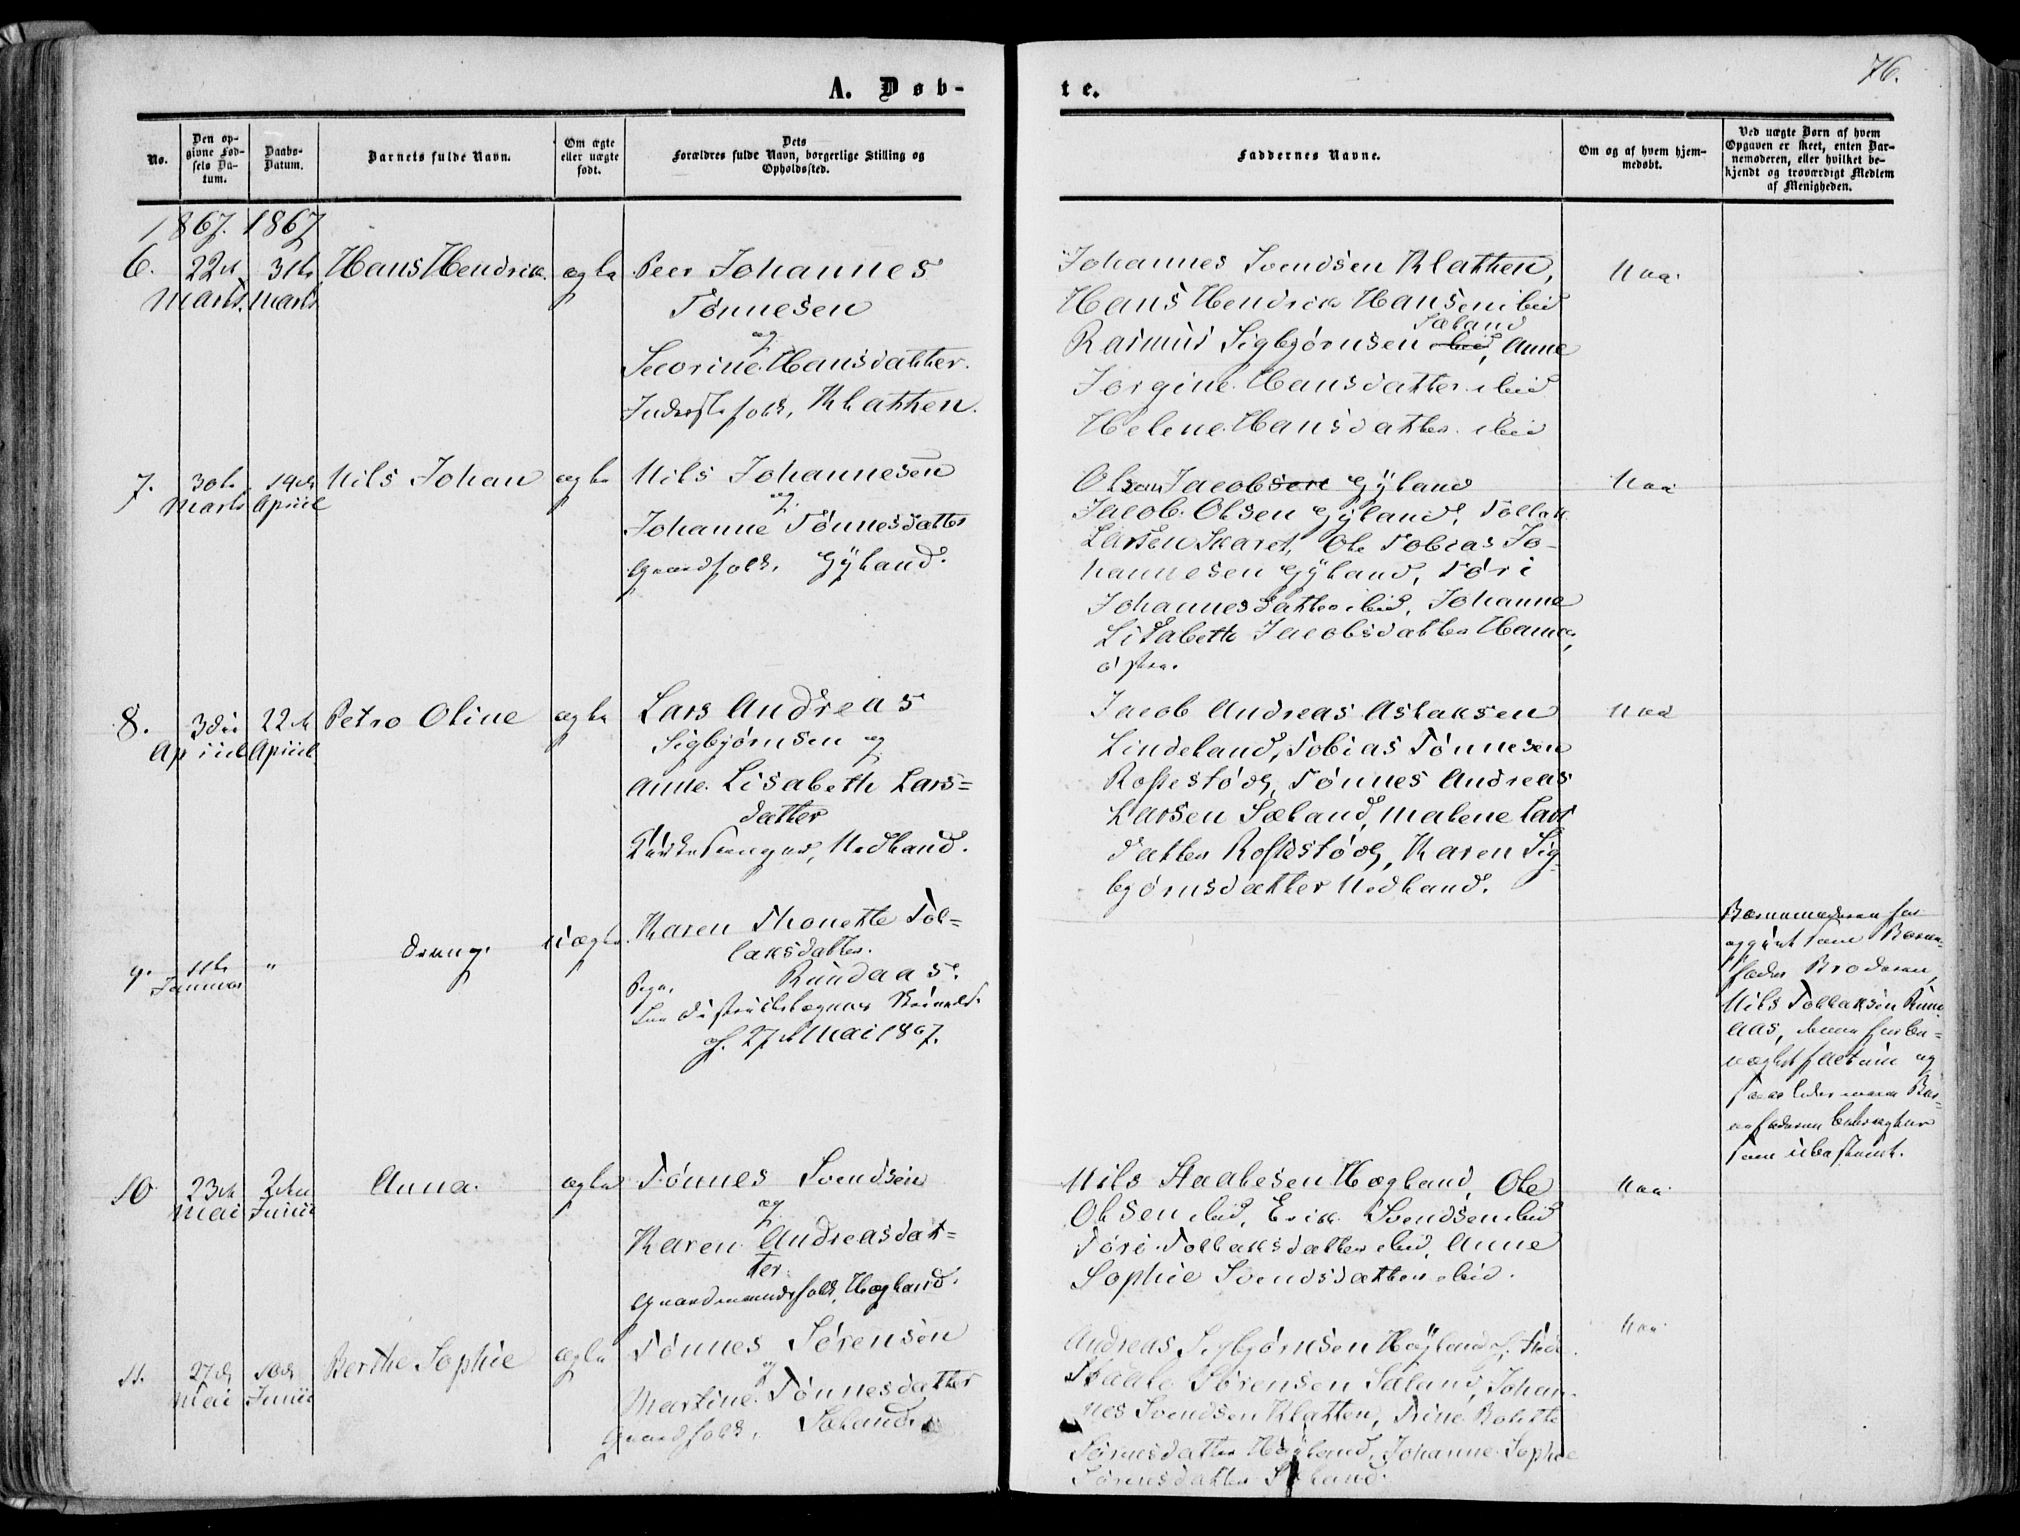 76.
A. Døb-
te.
No.
Den op-
givne Fød-
sels Da-
tum.
Daabs-
Datum.
Barnets fulde Navn.
Om ægte
eller uægte
født.
Dets
Forældres fulde Navn, borgerlige Stilling og
Opholdssted.
Faddernes Navne.
Om og af hvem hjem-
medøbt.
Ved uægte Børn af hvem
Opgaven er skeet, enten Bar-
nemoderen, eller hvilket be-
kjendt og troværdigt Medlem
af Menigheden.
1867. 1867
6.
22de
Marts.
31te
Marts
Hans Hendrik
ægte
Peer Johannes
Tønnesen
og
Severine Hansdatter.
Inderstfolk, Klatten.
Johannes Svendsen Klatten,
Hans Hendrik Hansen ibid
Sæland
Rasmus Sigbjørnsen ibid, Anne
Jorgine Hansdatter ibid
Helene Hansdatter ibid
Naa
7.
30te
Marts
19de
April
Nils Johan
ægte
Nils Johannesen
og
Johanne Tønnesdatter
Gaardfolk, Gyland.
Jacobsen Gyland
Jacob Olsen Gyland, Tollak
Larsen Skaret, Ole Tobias Jo-
hannesen Gyland, Tøri
Johannesdatter ibid, Johanne
Lisabeth Jacobsdatter
østre.
Naa
8.
3die
April
22de
April
Petro Oline
ægte
Lars Andreas
Sigbjørnsen og
Anne Lisabeth Lars=
datter
Kirkesanger, Nedland.
Jacob Andreas Aslaksen
Lindeland, Tobias Tønnesen
Røstestøøl, Tønnes Andreas
Larsen Sæland, Malene Lars
datter Røstestøøl, Karen Sig-
bjørnsdatter Nedland.
Naa
9.
11te
Januar
"
Dreng.
uægte
Karen Thonette Tol=
laksdatter.
Pige, Rundaas.
Distriktslægens
af 27de Mai 1867.
Barnemoderen har
opgivet som Barne-
fader Broderen,
Nils Tollaksen Rund
aas,
nægtet factum og
Bar-
nefaderen betragtes
som ubestemt.
10
23de
Mai
2den
Junii
Anna.
ægte
Tønnes Svendsen
og
Karen Andreasdat=
ter.
Gaardmandsfolk, Høgland.
Nils Staalesen Høgland, Ole
Olsen ibid, Erik Svendsen ibid
Tøri Tollaksdatter ibid, Anne
Sophie Svendsdatter ibid.
Naa
11.
27de
Mai
10de
Junii
Berthe Sophie
ægte
Tønnes Sørensen
og
Martine Tønnesdatter
Gaardfolk, Sæland.
Andreas Sigbjørnsen
Staale Sørensen Sæland, Johan-
nes Svendsen Klatten, Trine Bolette
Sørensdatter Høyland, Johanne Sophie
Sørensdatter Sæland.
Naa